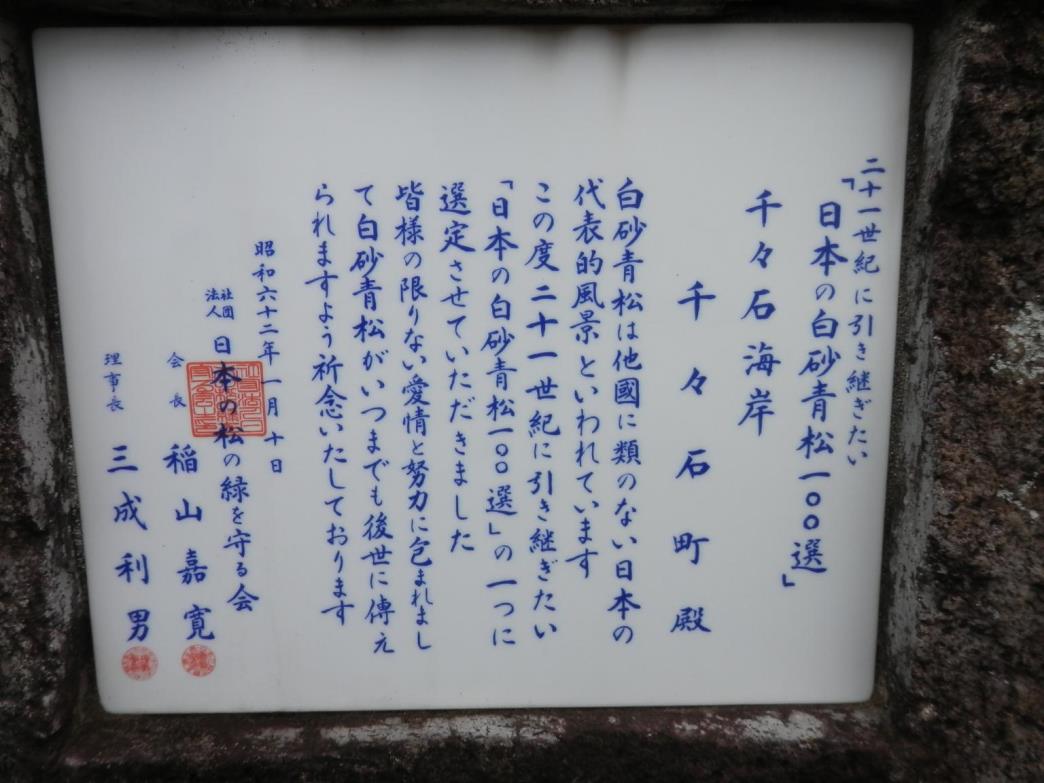 二十一世紀に引き継ぎたい
「日本の白砂青松一〇〇選」
千々石海岸
千々石町殿
白砂青松は他國に類のない日本の
代表的風景といわれています
この度二十一世紀に引き継ぎたい
「日本の白砂青松一〇〇選」の一つに
選定させていただきました
皆様の限りない愛情と努力に包まれまし
て白砂青松がいつまでも後世に傳え
られますよう祈念いたしております
昭和六十二年一月十日
社団法人 日本の松の緑を守る会
会長 稲山嘉寛
理事長 三成利男